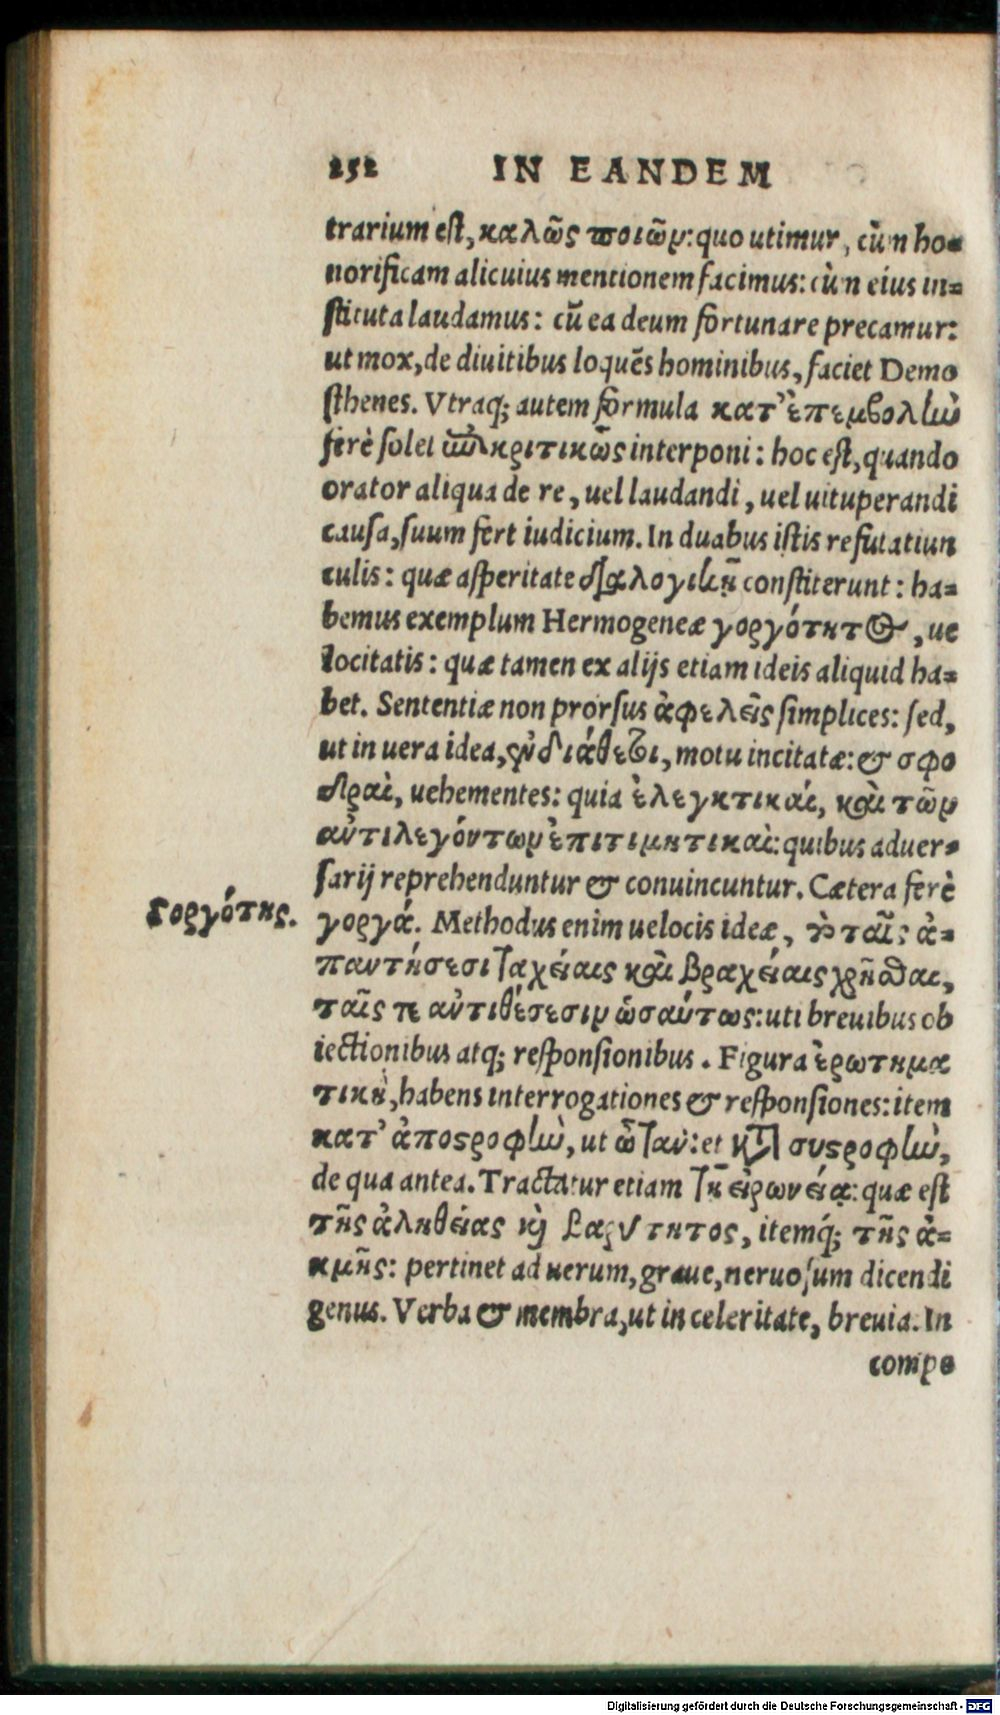 252 IN EANDEM
trarium est, καλῶς ποιῶν: quo utimur, cùm ho-
norificam alicuius mentionem facimus: cùm eius in-
stituta laudamus: cũ ea deum fortunare precamur:
ut mox, de diuitibus loquẽs hominibus, faciet Demo
sthenes. Vtraq; autem formula κατ' ἐπεμβολὴν
ferè solet ἐπικριτικῶς interponi: hoc est, quando
orator aliqua de re, uel laudandi, uel uituperandi
causa, suum fert iudicium. In duabus istis refutatiun
culis: quæ asperitate διαλογικῇ constiterunt: ha-
bemus exemplum Hermogeneæ γοργότητος, ue
locitatis: quæ tamen ex alijs etiam ideis aliquid ha-
bet. Sententiæ non prorsus ἀφελεῖς simplices: sed,
ut in uera idea, ἐνδιάθετοι, motu incitatæ: & σφο
δραὶ, uehementes: quia ἐλεγκτικαί, καὶ τῶν
ἀντιλεγόντων ἐπιτιμητικαὶ: quibus aduer-
sarij reprehenduntur & conuincuntur. Cætera ferè
Γοργότης.
γοργά. Methodus enim uelocis ideæ, τὸ ταῖς ἀ-
παντήσεσι ταχείαις καὶ βραχείαις χρῆσθαι,
ταῖς τε ἀντιθέσεσιν ὡσαύτως: uti breuibus ob
iectionibus atq; responsionibus. Figura ἐρωτημα
τικὴ, habens interrogationes & responsiones: item
κατ' ἀποστροφὴν, ut ὦ τᾶν: et κατὰ συστροφὴν,
de qua antea. Tractatur etiam τῇ εἰρωνείᾳ: quæ est
τῆς ἀληθείας καὶ βαρύτητος, itemq́; τῆς ἀ-
κμῆς: pertinet ad uerum, graue, neruosum dicendi
genus. Verba & membra, ut in celeritate, breuia. In
compo
Digitalisierung gefördert durch die Deutsche Forschungsgemeinschaft - DFG